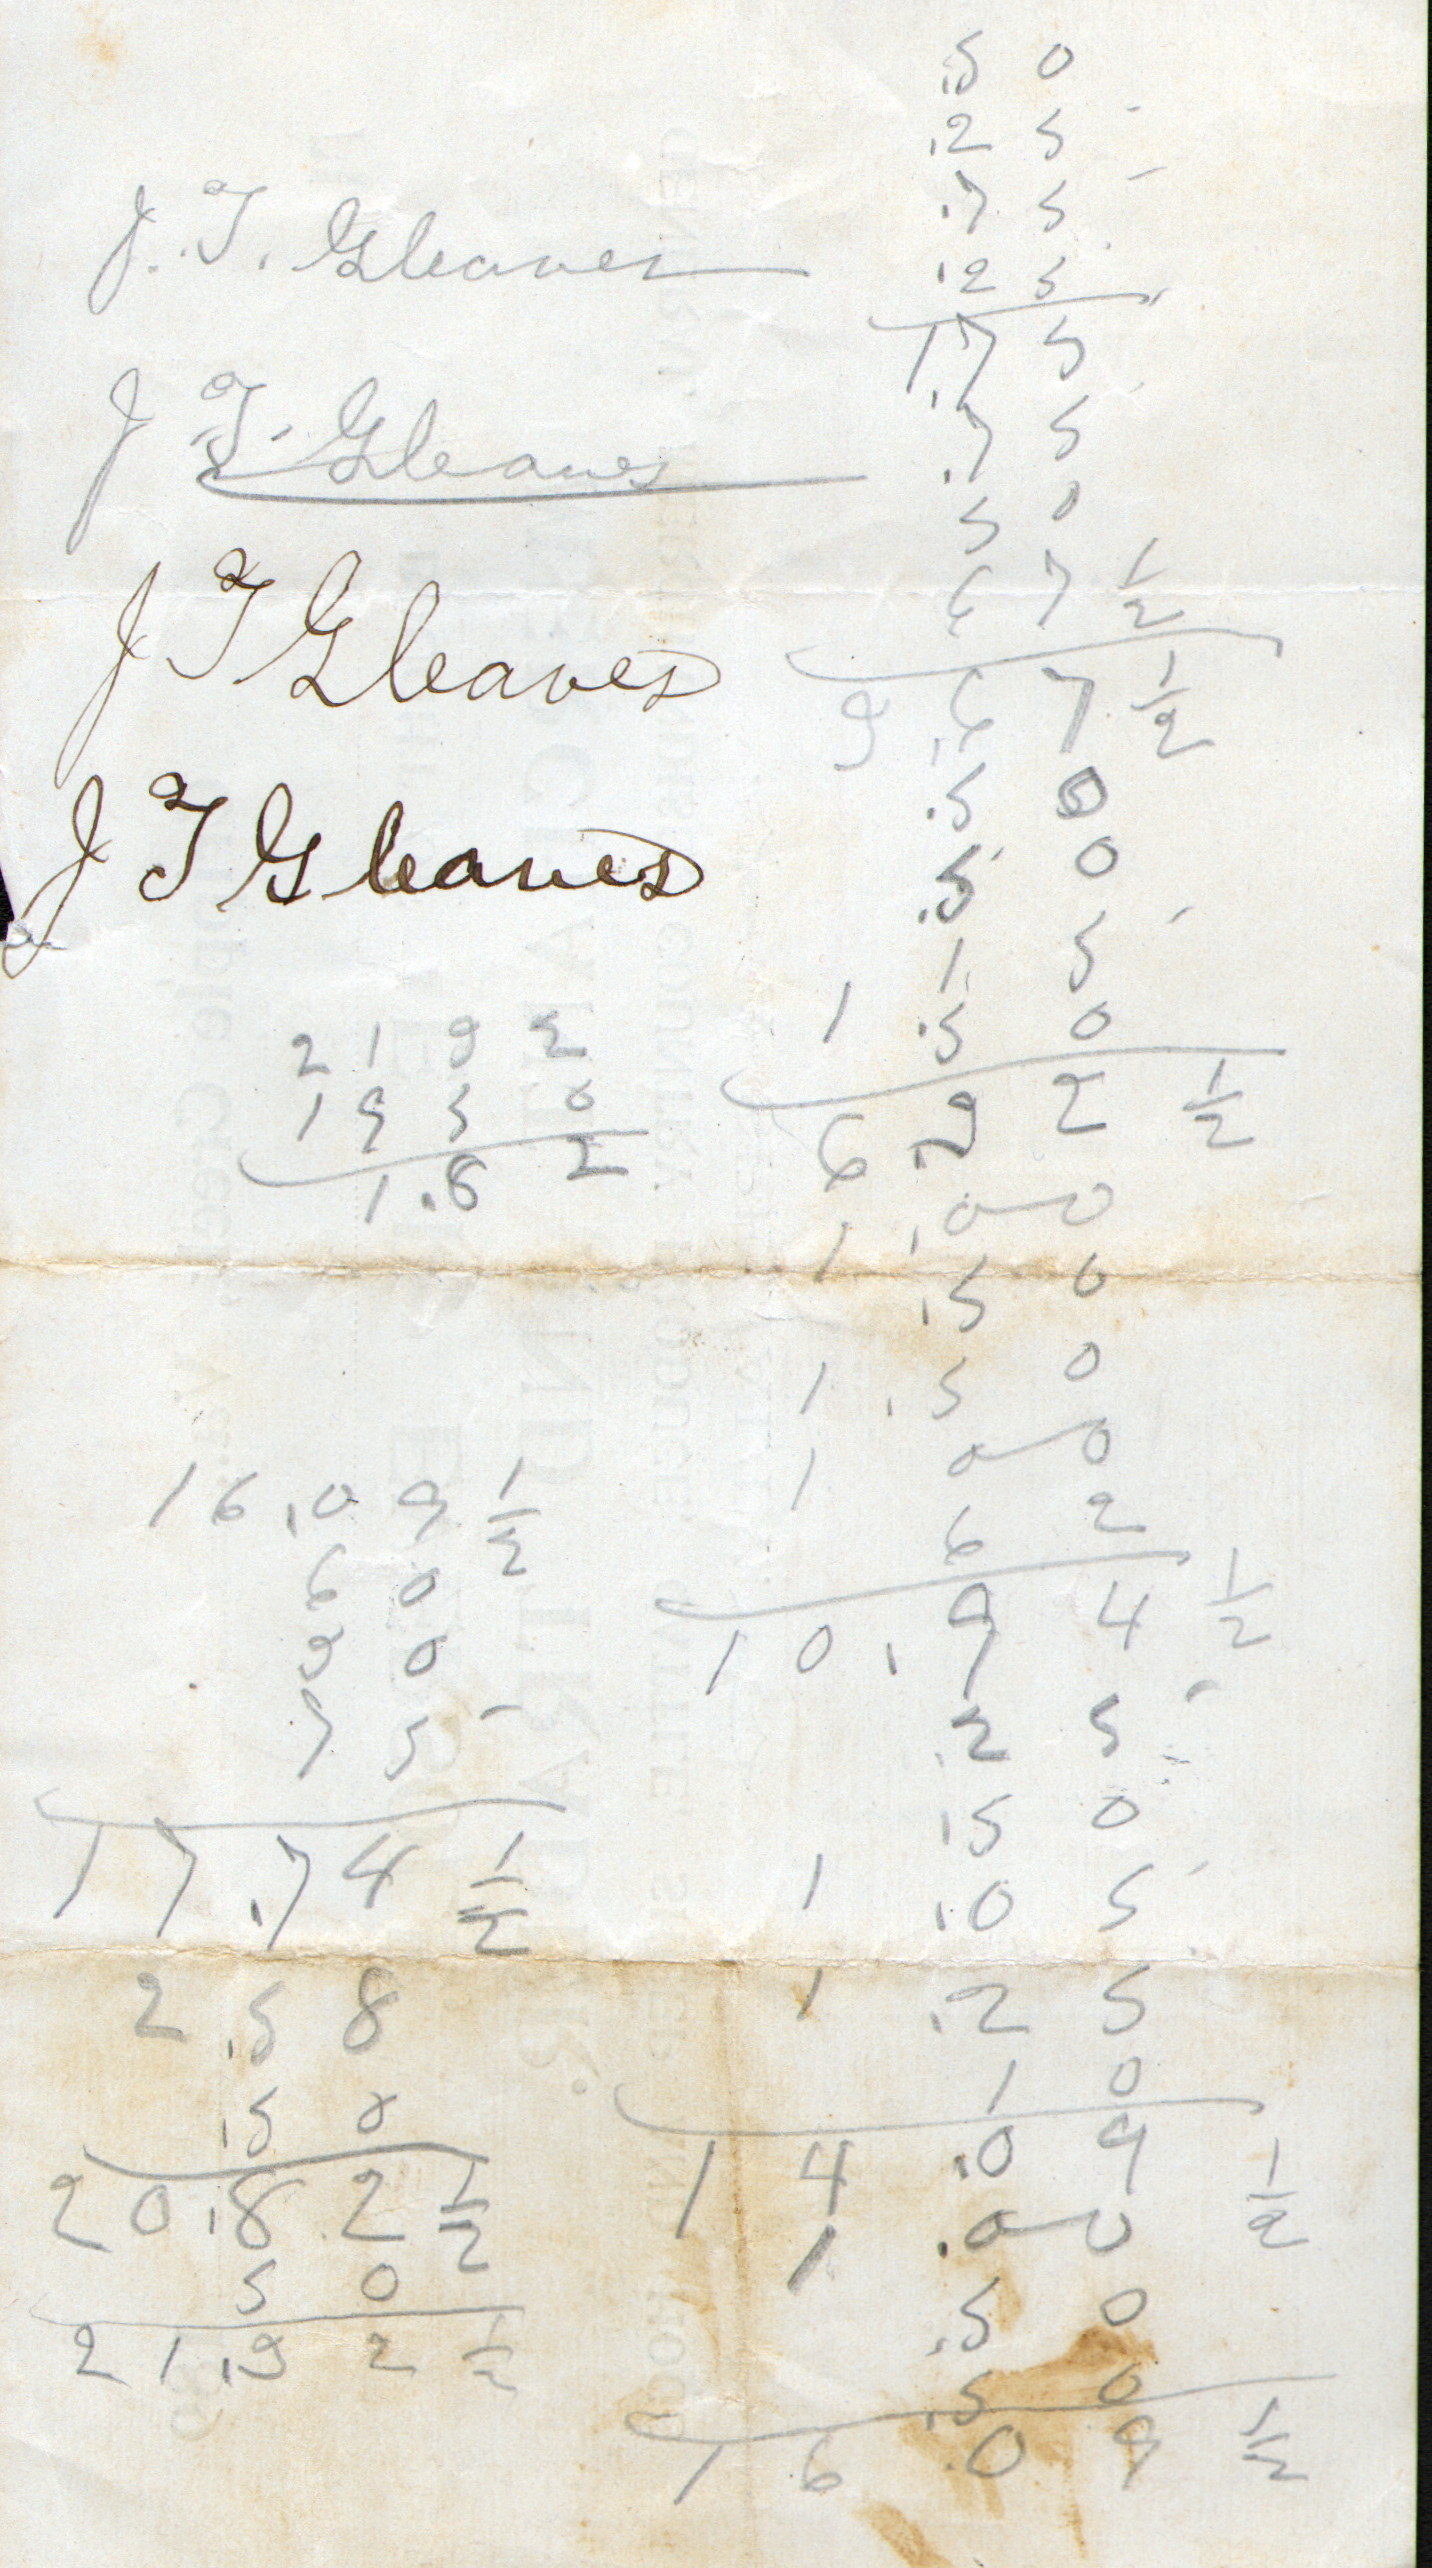 J. T. Gleaves
J. T. Gleaves
J T Gleaves
J T Gleaves
2132
1950
1.82
16.09 1/2
60
30
75
17.74 1/2
2.58
.50
20.82 1/2
50
21.32 1/2
.50
.25
.75
.25
1.75
.75
50
67 1/2
3.67 1/2
.50
.50
15
1.50
6.32 1/2
1.00
.50
1.50
1 00
62
10.94 1/2
.25
.50
1.05
1.25
10
14.09 1/2
1.00
.50
.50
16.09 1/2